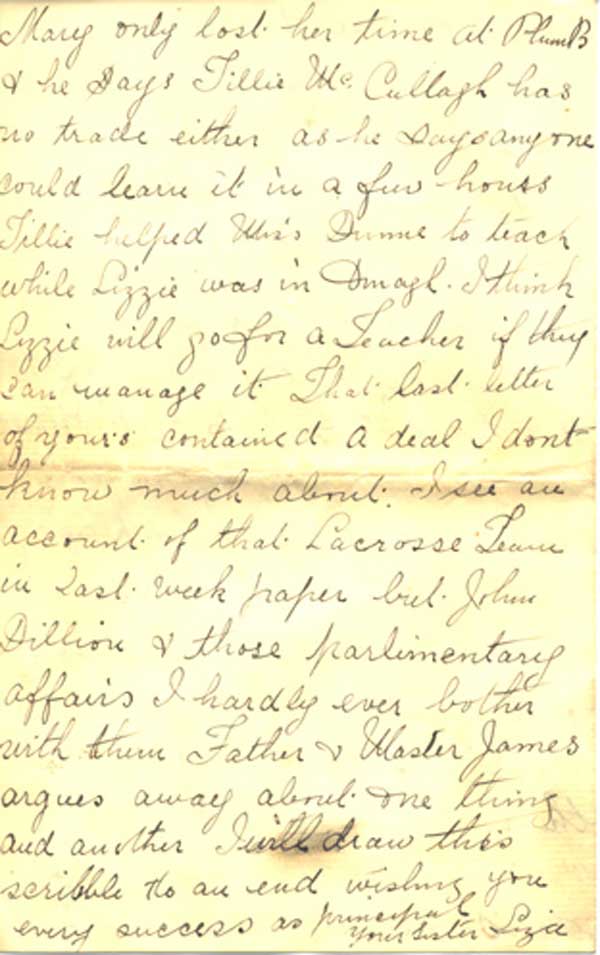 Mary only lost her time at PlumB
& he says Tillie Mc Cullagh has
no trade either as he says any one
could learn it in a few hours
Tillie helped Miss Dunne to teach
while Lizzie was in Omagh. I think
Lizzie will go for a Teacher if they
can manage it That last letter
of yours contained a deal I dont
know much about. I see an
account of that Lacrosse Team
in last week paper but John
Dillion & those parlimentary
affairs I hardly ever bother
with them Father & Master James
argues away about one thing
and another I will draw this
scribble to an end wishing you
every success as principal
your sister Lizie